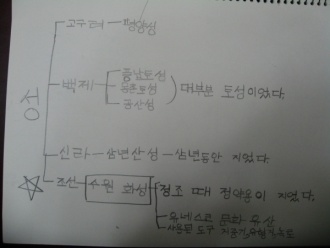 성
고구려 - 평양성
백제
풍납토성
몽촌토성
공산성
대부분 토성이었다.
신라 - 삼년산성 - 삼년동안 지었다.
조선 - 수원 화성 - 정조 때 정약용이 지었다.
유네스코 문화 유산
사용된 도구